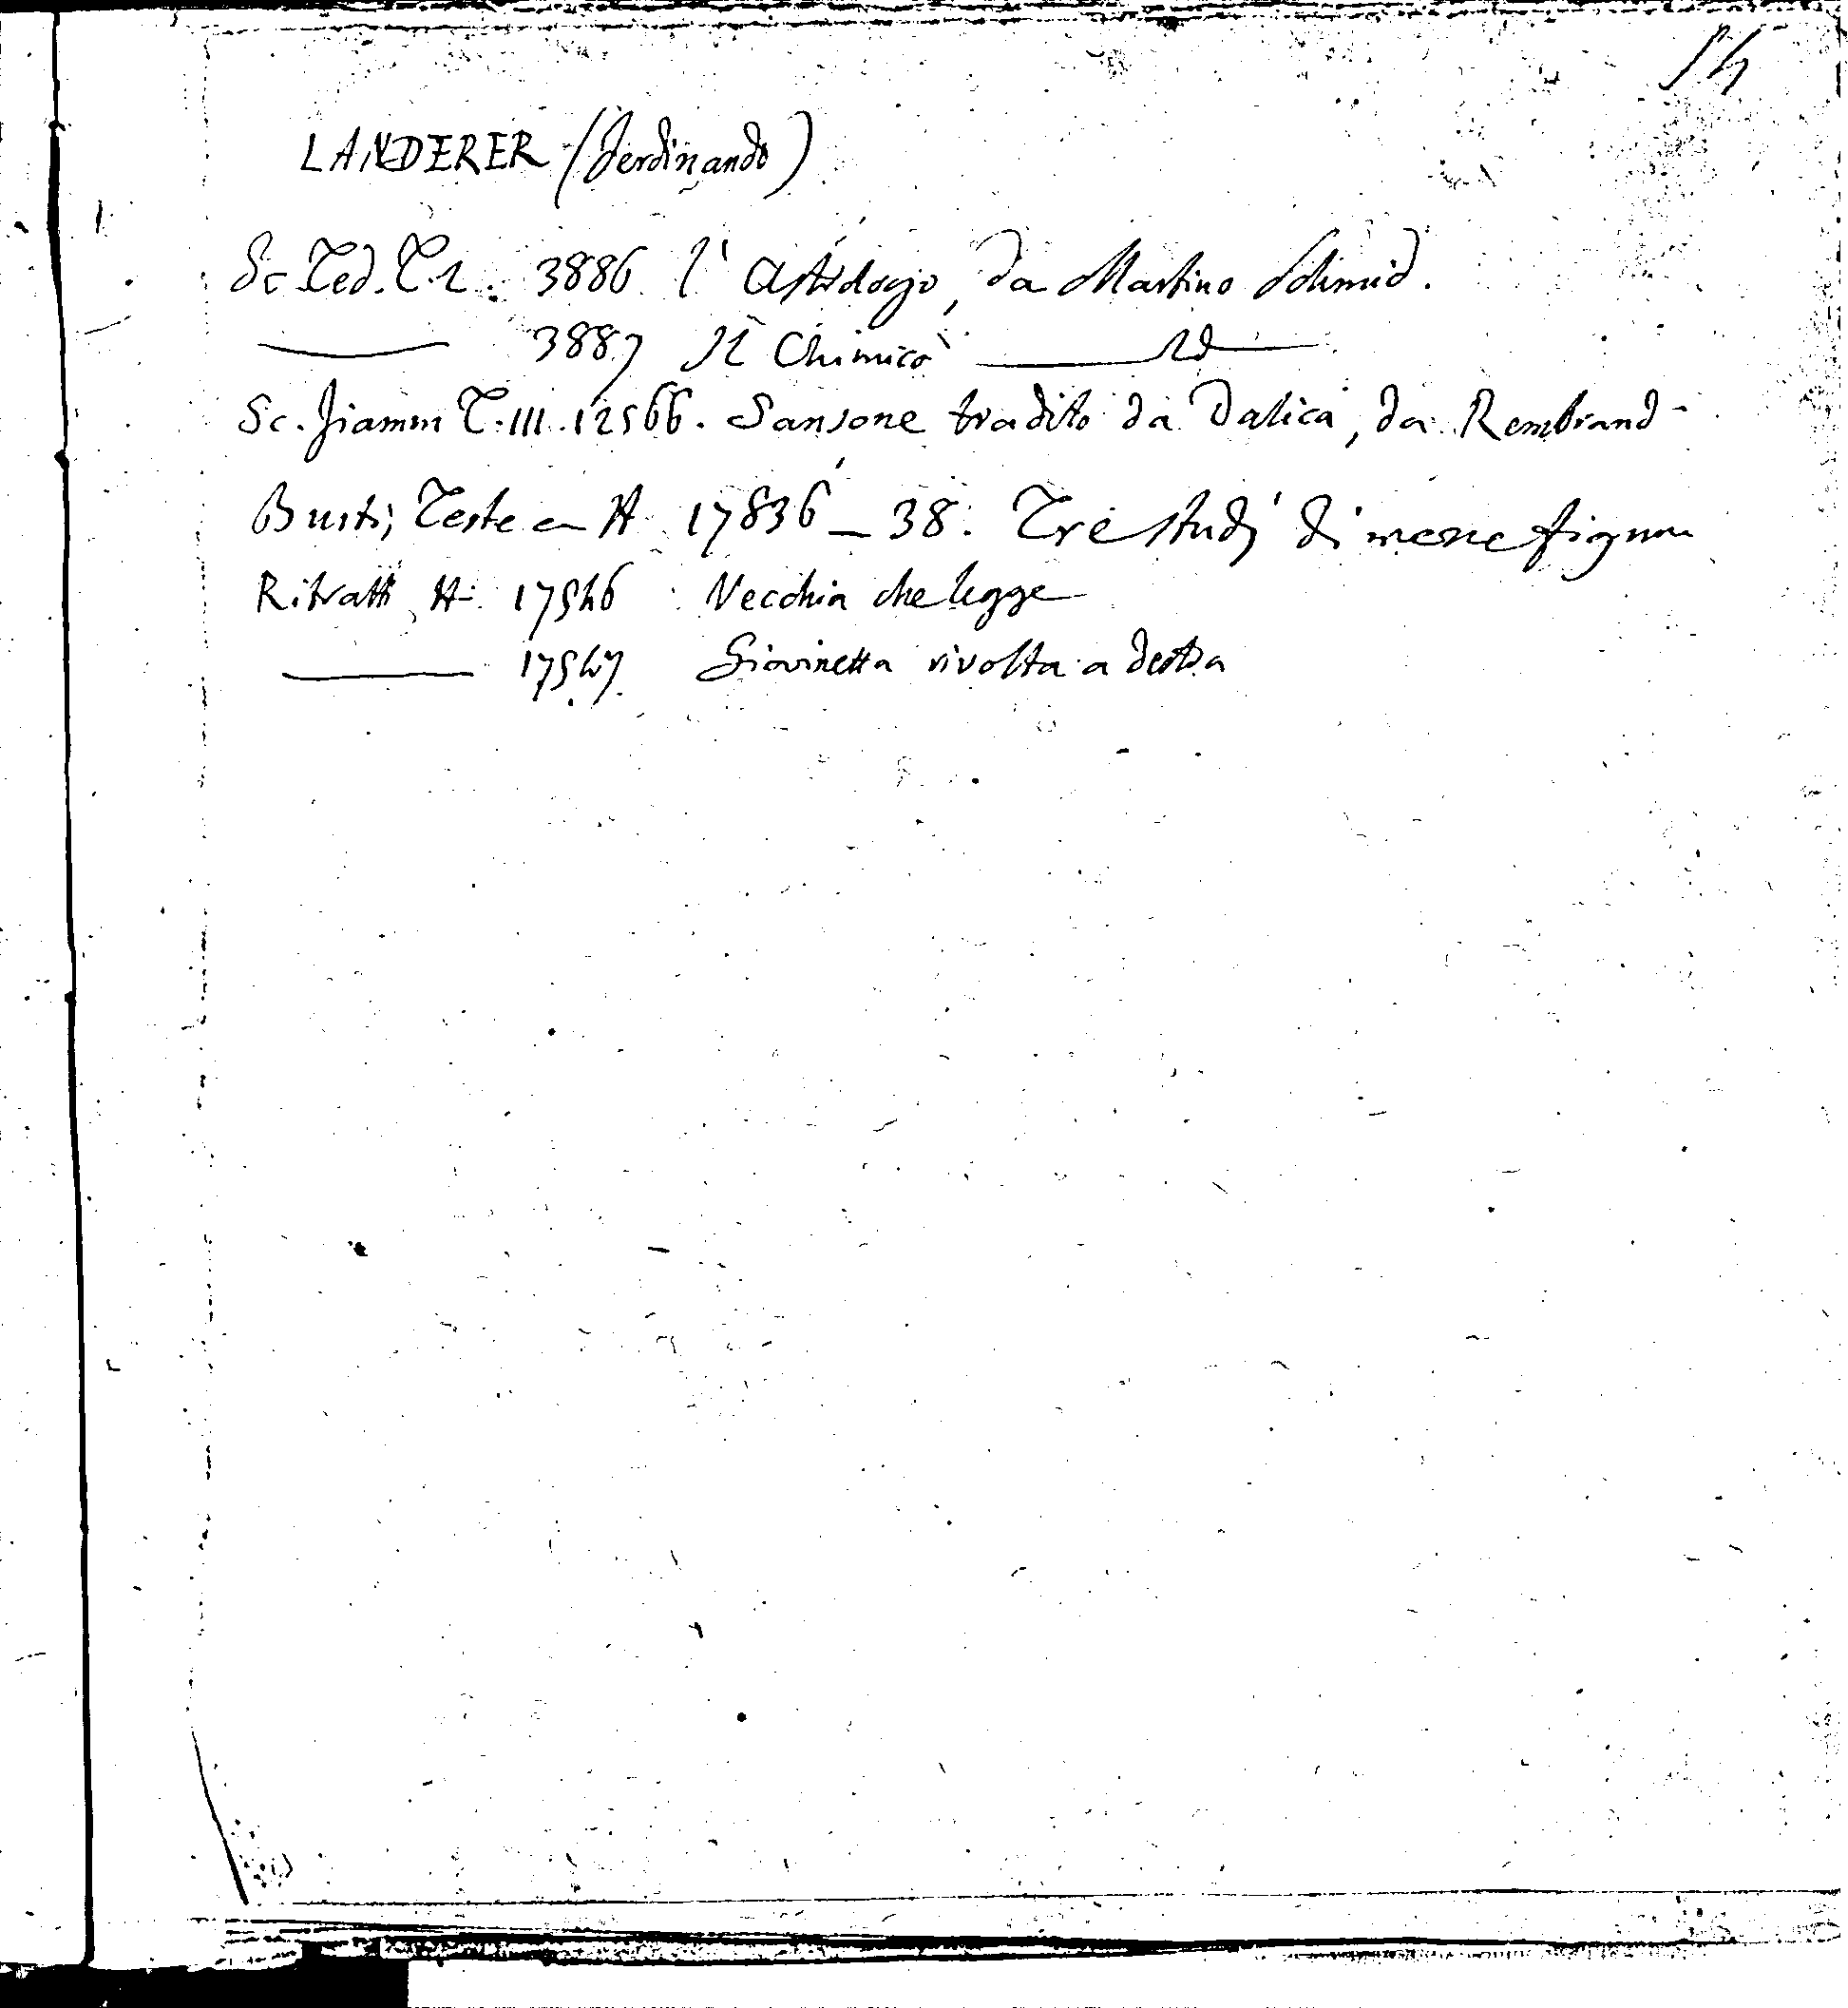 54
LANDERER (Ferdinando)
Sc. Ted. T. 1. 3886. l'Astrologo, da Martino Schmid.
3887 Il Chimico Id
Sc. Fiamm T. III. 12566. Sansone tradito da Dalica, da Rembrand
Busti, Teste e A 17836 — 38. Tre studj di mezze figure
Ritratti A 17546 Vecchia che legge
17547 Giovinetta rivolta a destra